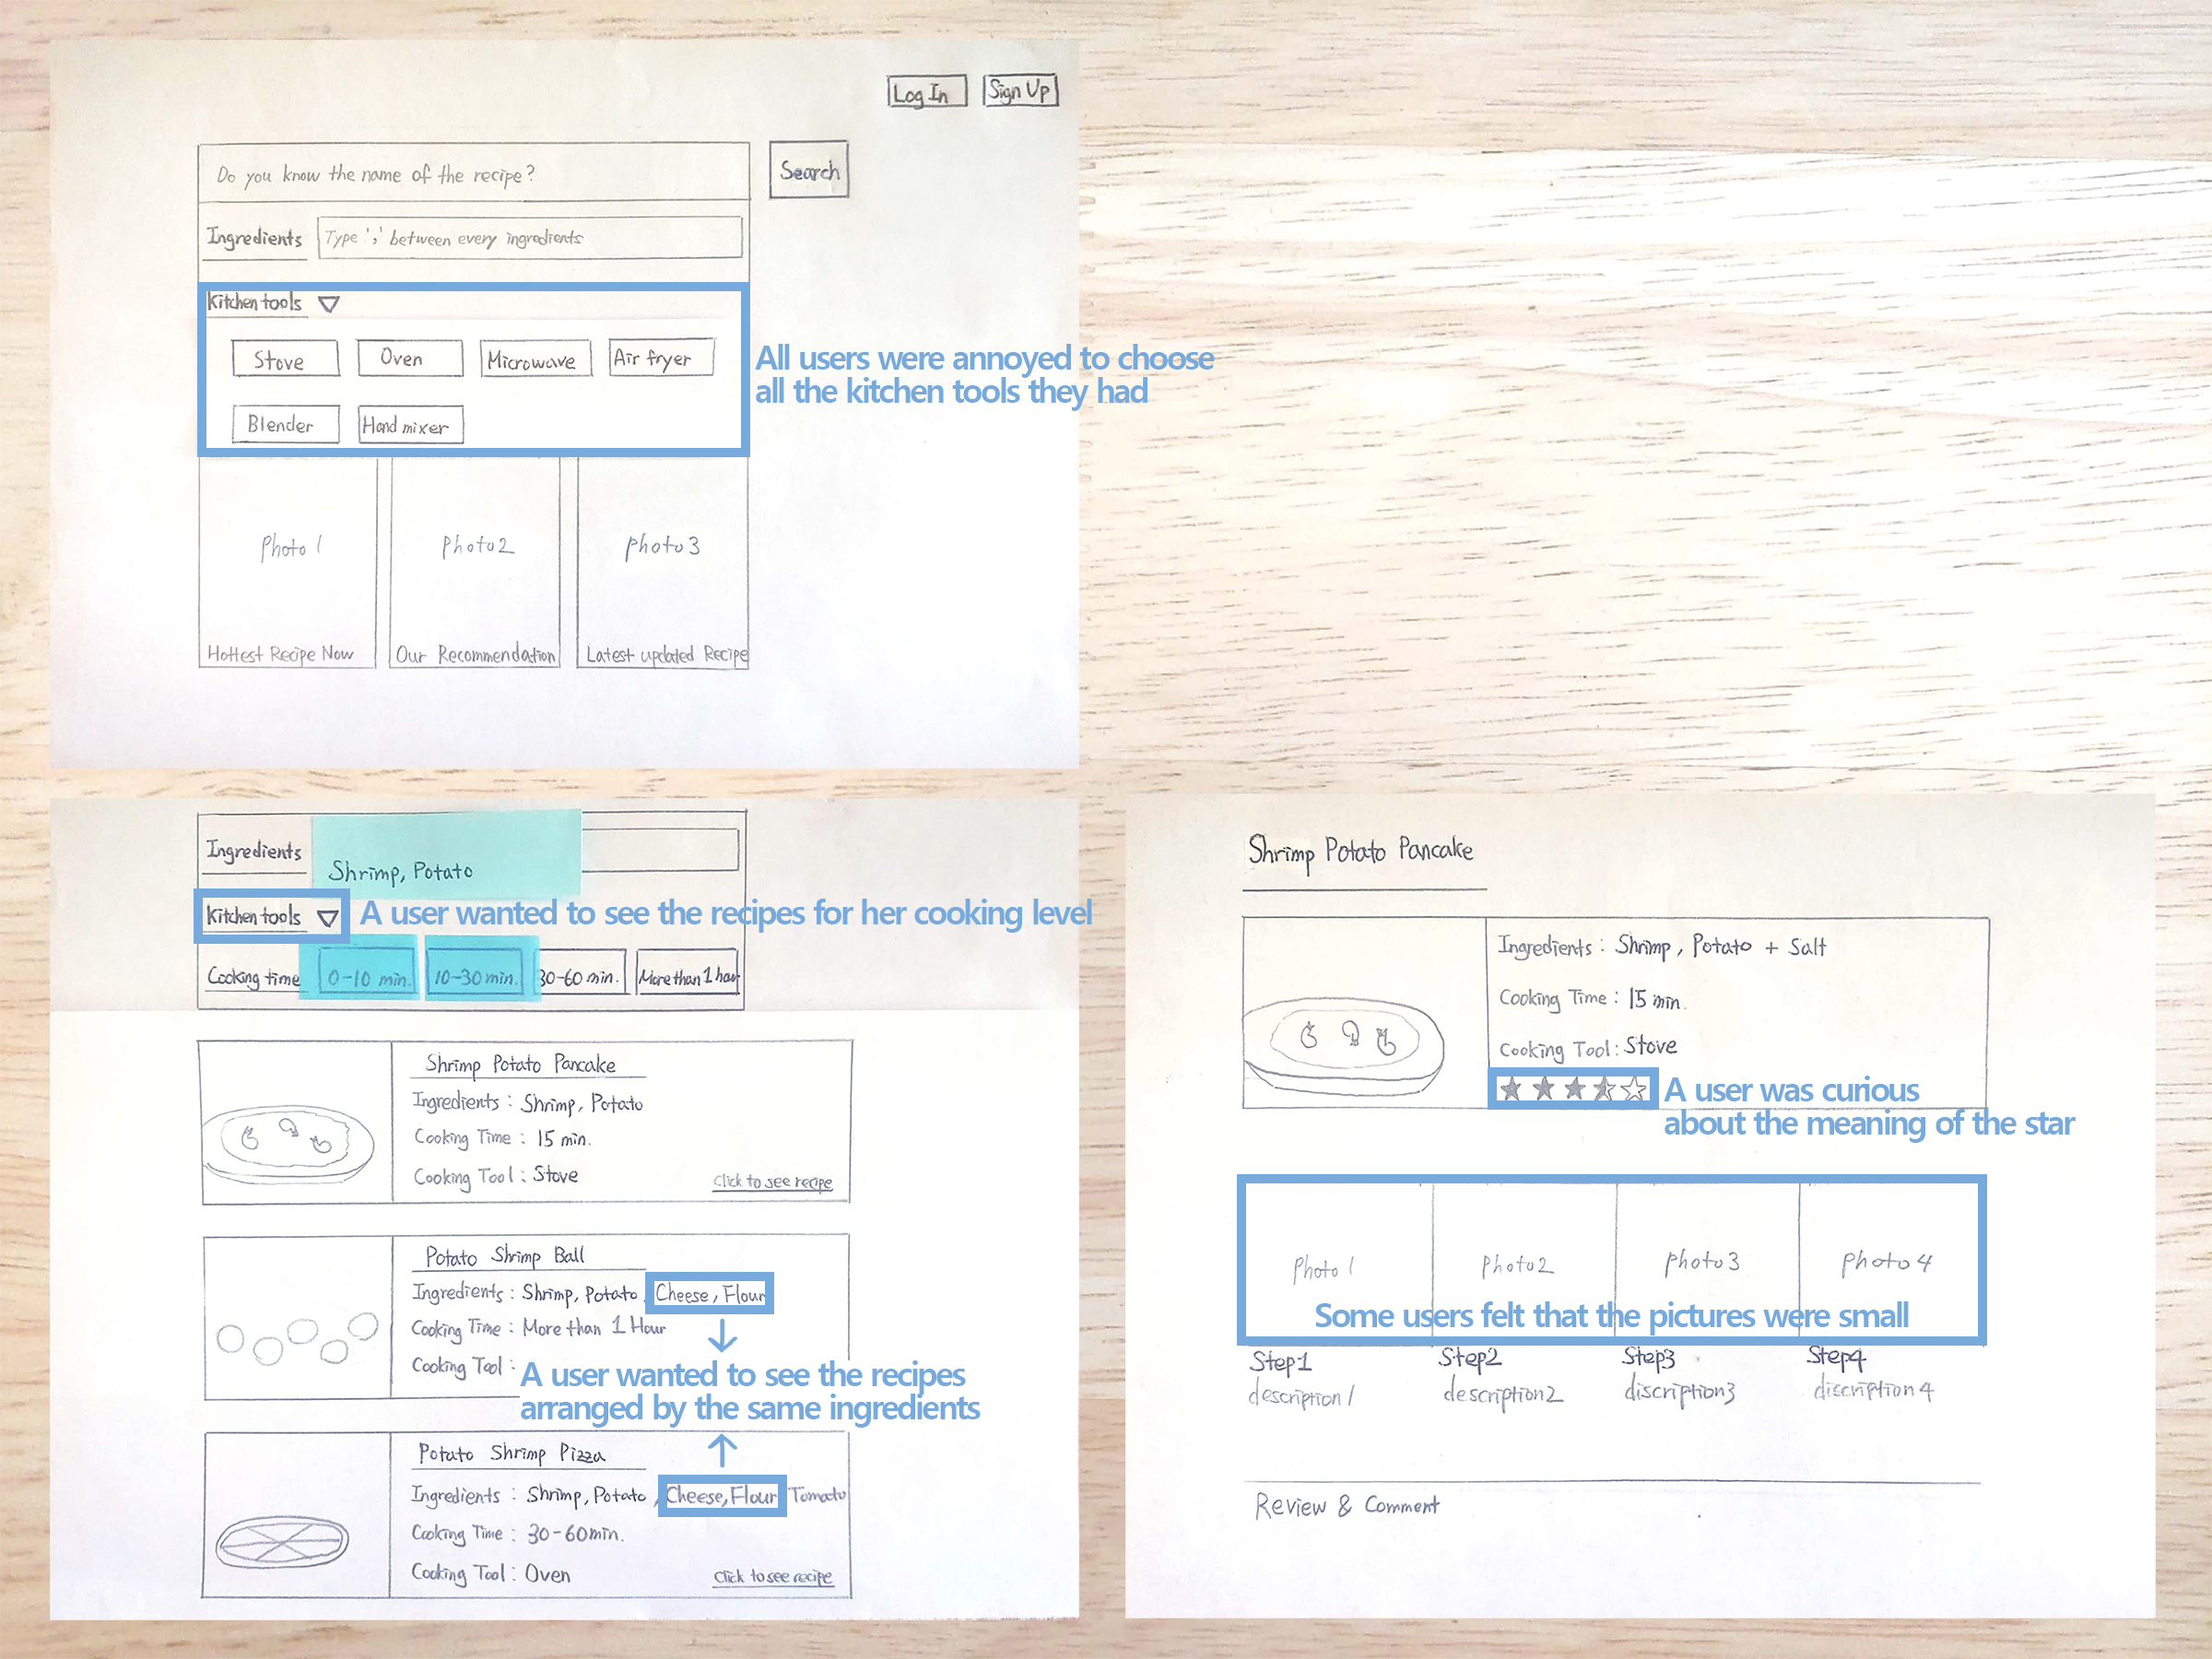 Log In Sign Up
Do you know the name of the recipe?
Search
Ingredients Type ',' between every ingredients
Kitchen tools
Stove Oven Microwave Air fryer
Blender Hand mixer
All users were annoyed to choose
all the kitchen tools they had
Photo 1 Photo2 photo3
Hottest Recipe Now Our Recommendation Latest updated Recipe
Ingredients Shrimp, Potato
Kitchen tools A user wanted to see the recipes for her cooking level
Cooking time 0-10 min. 10-30 min. 30-60 min. More than 1 hour
Shrimp Potato Pancake
Ingredients : Shrimp, Potato
Cooking Time : 15 min.
Cooking Tool : Stove
Click to see recipe
Potato Shrimp Ball
Ingredients : Shrimp, Potato, Cheese, Flour
Cooking Time : More than 1 Hour
Cooking Tool :
A user wanted to see the recipes
arranged by the same ingredients
Potato Shrimp Pizza
Ingredients : Shrimp, Potato, Cheese, Flour Tomato
Cooking Time : 30-60min.
Cooking Tool : Oven
Click to see recipe
Shrimp Potato Pancake
Ingredients : Shrimp, Potato + Salt
Cooking Time : 15 min.
Cooking Tool : Stove
A user was curious
about the meaning of the star
Photo 1 Photo2 photo3 photo 4
Some users felt that the pictures were small
Step1 Step2 Step3 Step4
description 1 description2 discription3 discription 4
Review & Comment